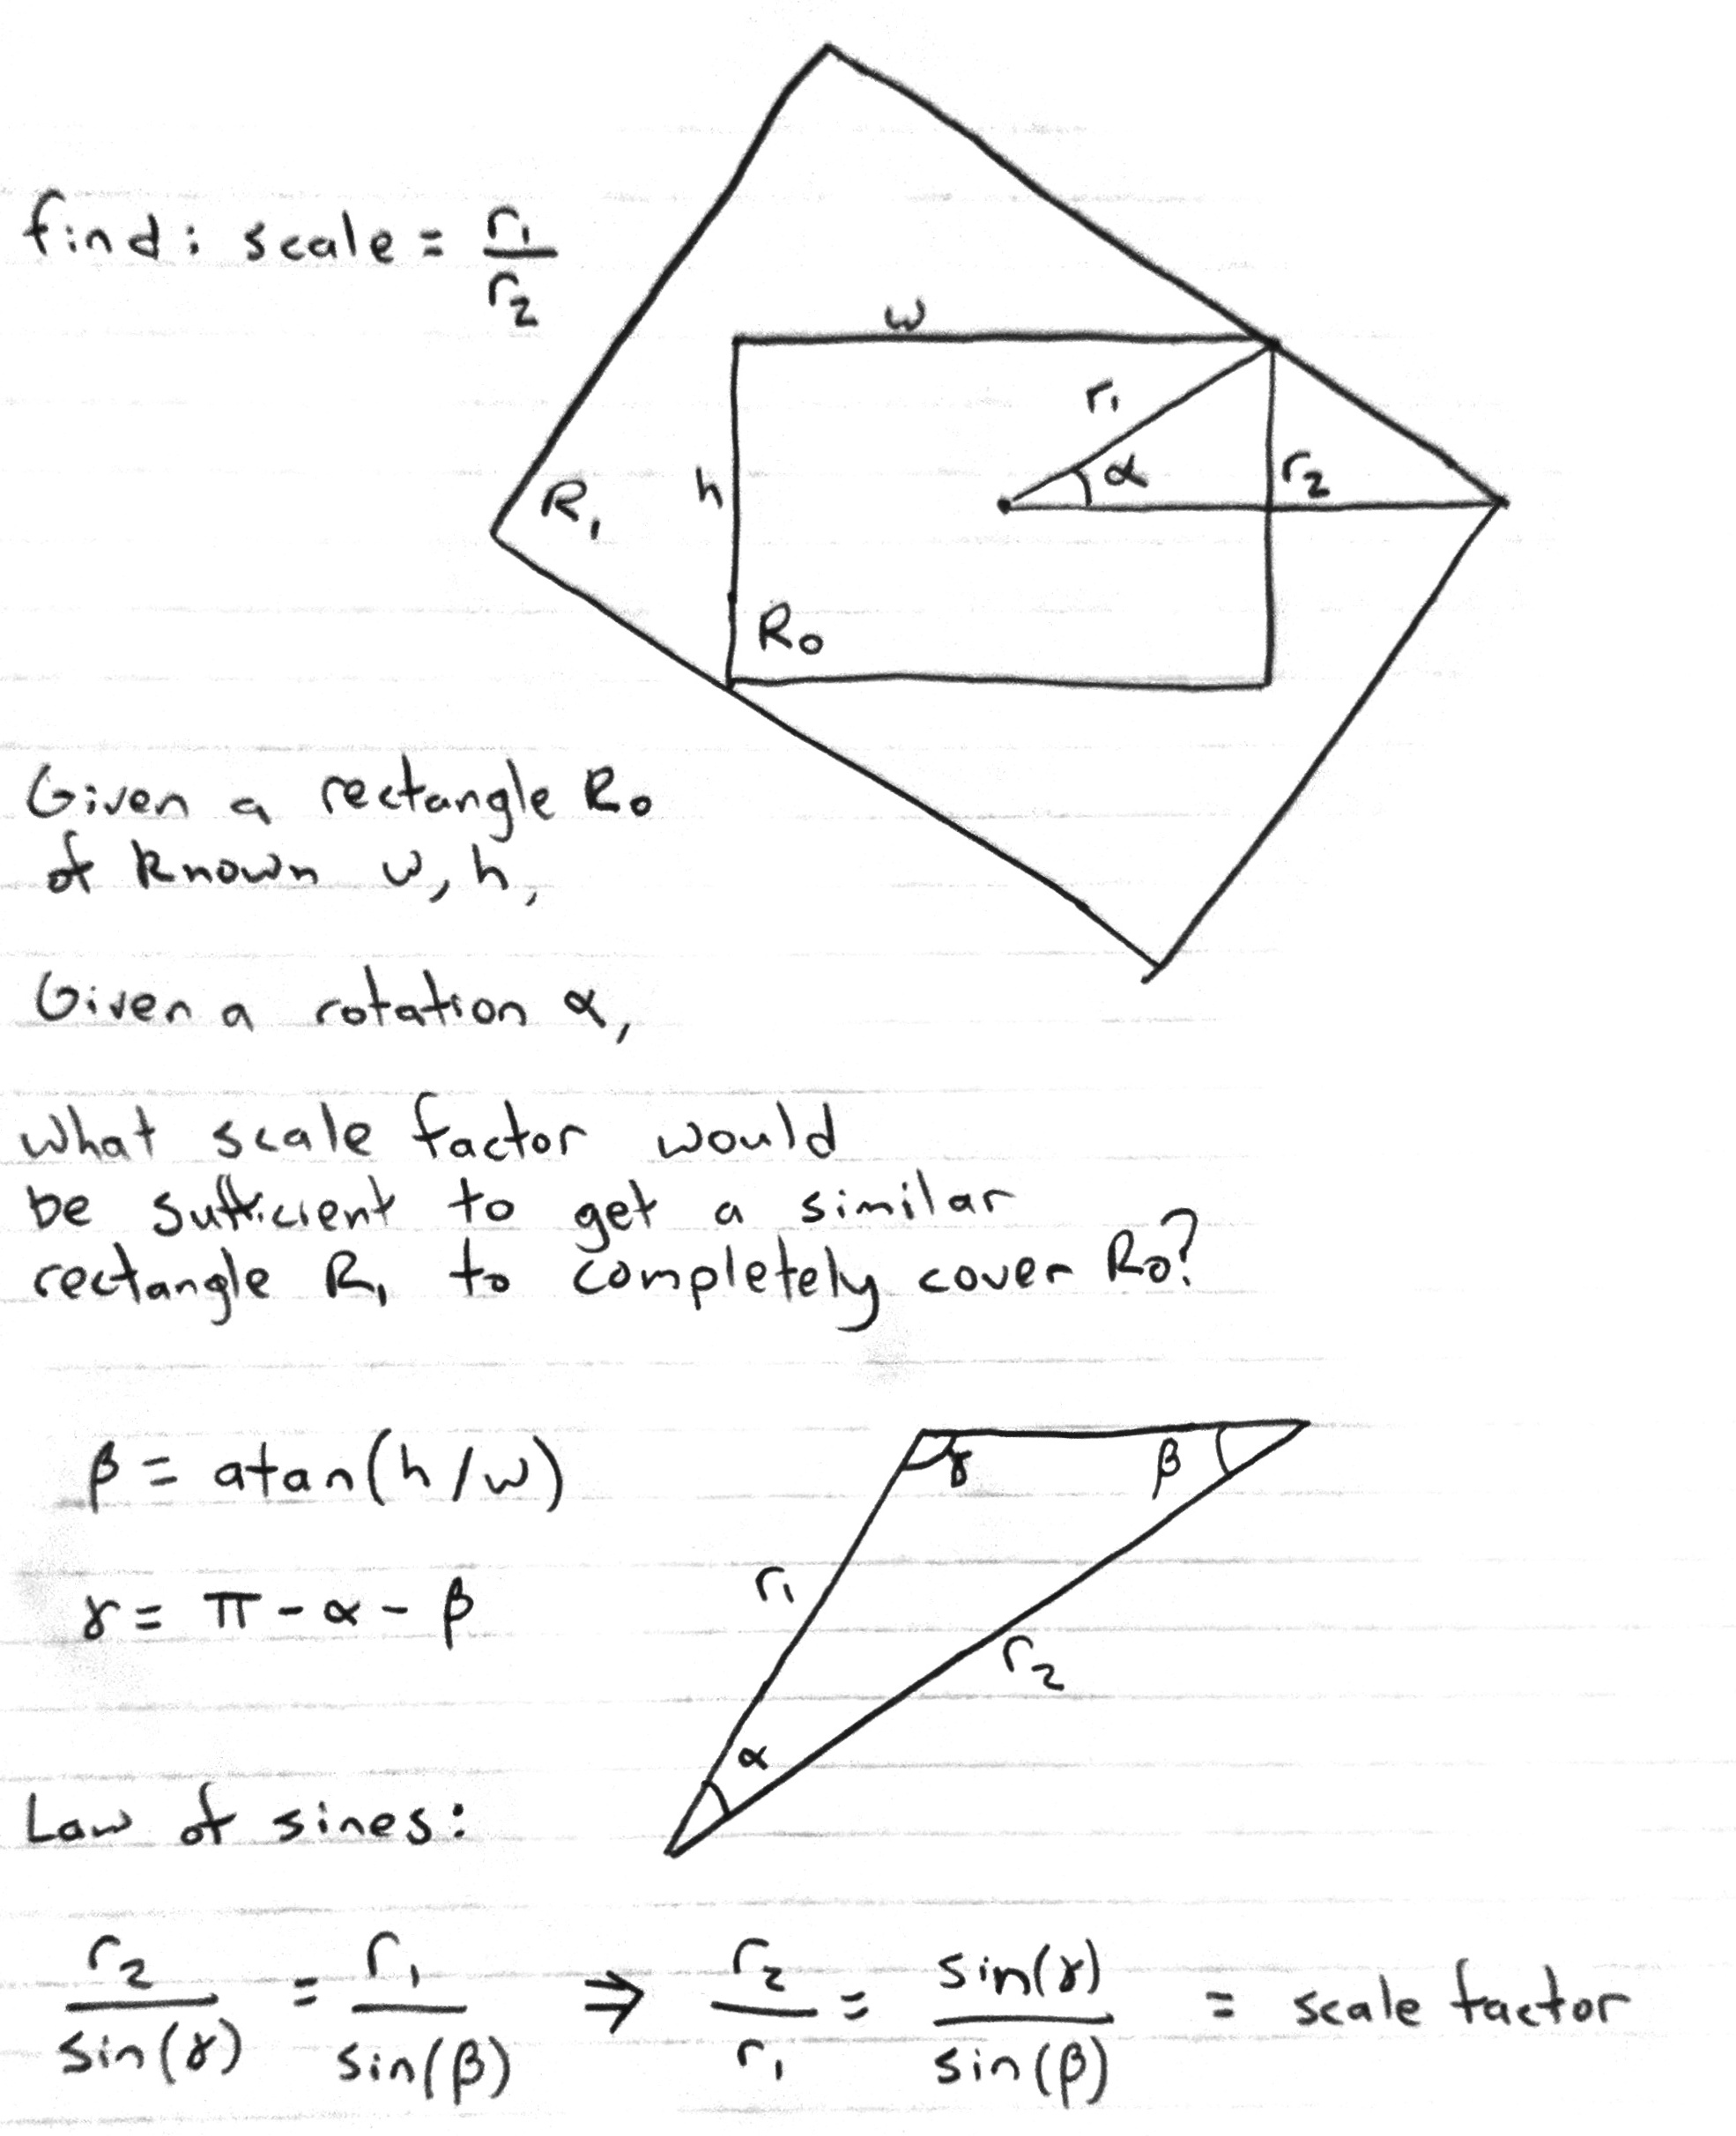 find: scale = r₁/r₂
w
r₁
α
r₂
h
R₁
R₀
Given a rectangle R₀
of known w, h,
Given a rotation α,
What scale factor would
be sufficient to get a similar
rectangle R₁ to completely cover R₀?
β = atan(h/w)
γ = π - α - β
γ
β
r₁
r₂
α
Law of sines:
r₂/sin(γ) = r₁/sin(β) ⇒ r₂/r₁ = sin(γ)/sin(β) = scale factor